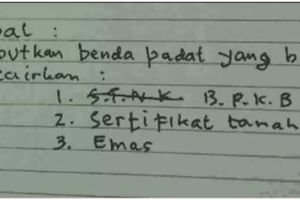 oal :
butkan benda padat yang b
cairkan :
1. S.T.N.K. B.P.K.B
2. Sertifikat tanah
3. Emas